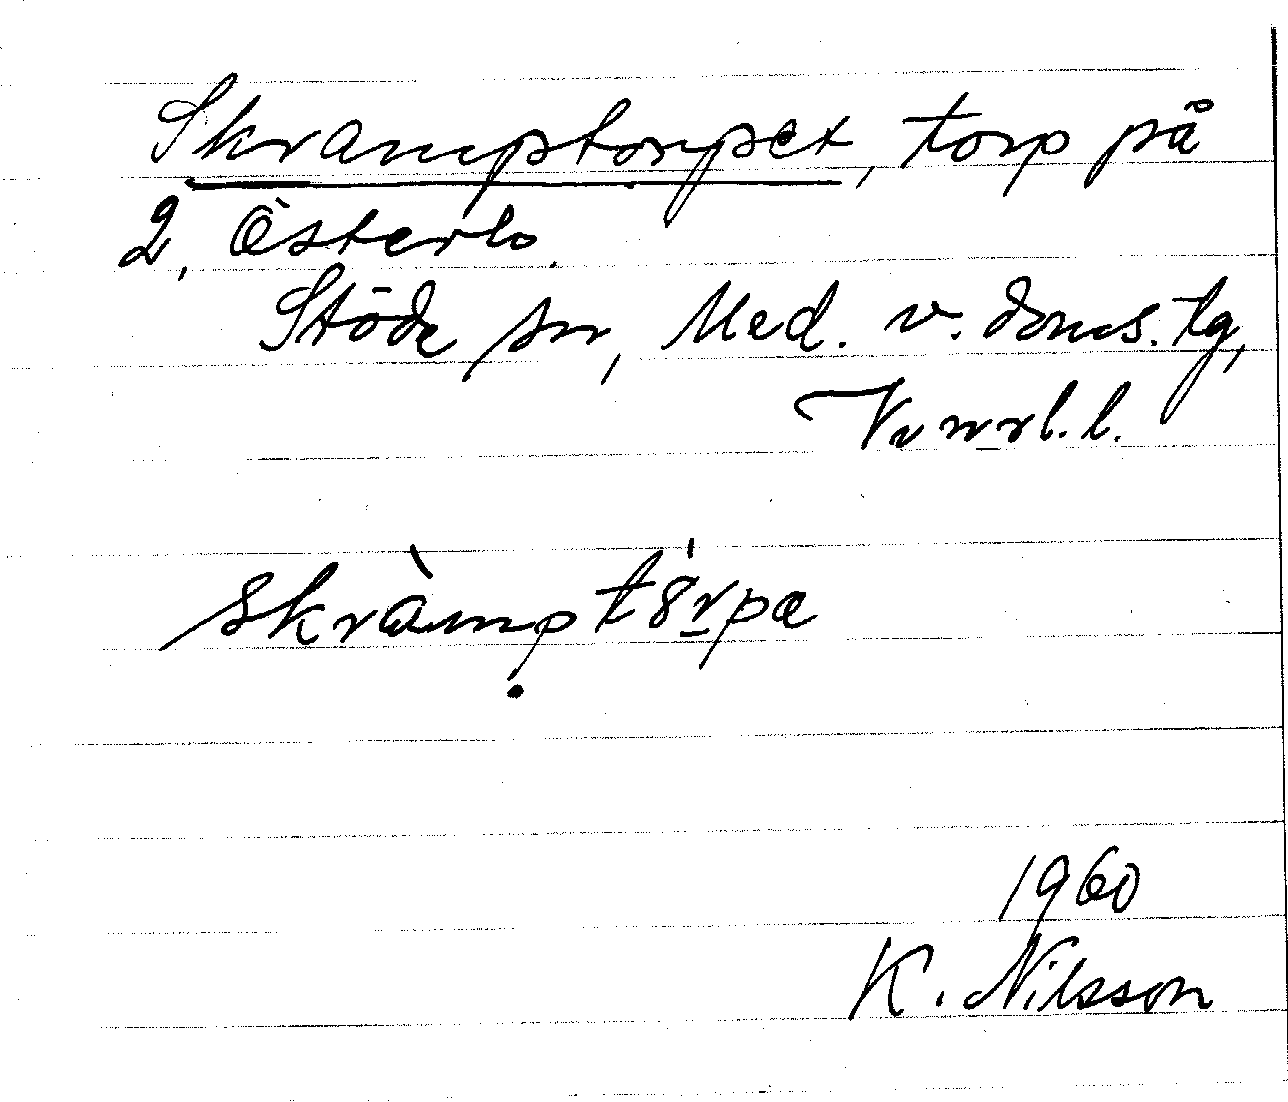 Skramptorpet, torp på
2, Österlo.
Stöde sn, Med. v. doms. tg,
Vvnrl. l.
skràmptó̀rpa
1960
K. Nilsson